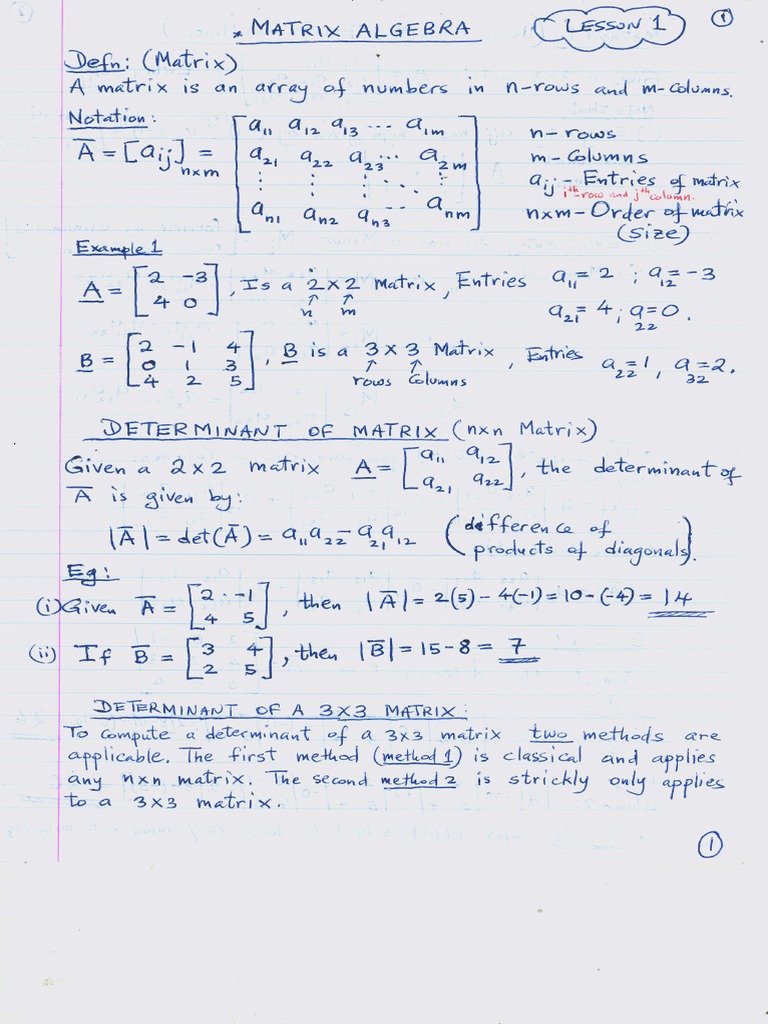 * MATRIX ALGEBRA LESSON 1 1
Defn: (Matrix)
A matrix is an array of numbers in n-rows and m-columns.
Notation:
A̅ = [aij]n×m = [a11 a12 a13 ... a1m
a21 a22 a23 ... a2m
⋮ ⋮ ⋮ ⋱ ⋮
an1 an2 an3 ... anm]
n-rows
m-columns
aij - Entries of matrix
ith-row and jth column.
n×m - Order of matrix
(size)
Example 1
A = [2 -3
4 0], Is a 2×2 Matrix, Entries a11 = 2 ; a12 = -3
n m a21 = 4 ; a22 = 0.
B = [2 -1 4
0 1 3
4 2 5], B is a 3×3 Matrix, Entries a22 = 1, a32 = 2.
rows columns
DETERMINANT OF MATRIX (n×n Matrix)
Given a 2×2 matrix A = [a11 a12
a21 a22], the determinant of
A̅ is given by:
|A̅| = det(A̅) = a11a22 - a21a12 (difference of
products of diagonals).
Eg:
(i) Given A̅ = [2 -1
4 5], then |A̅| = 2(5) - 4(-1) = 10 - (-4) = 14
(ii) If B̅ = [3 4
2 5], then |B̅| = 15 - 8 = 7
DETERMINANT OF A 3×3 MATRIX:
To compute a determinant of a 3×3 matrix two methods are
applicable. The first method (method 1) is classical and applies
any n×n matrix. The second method 2 is strickly only applies
to a 3×3 matrix.
1